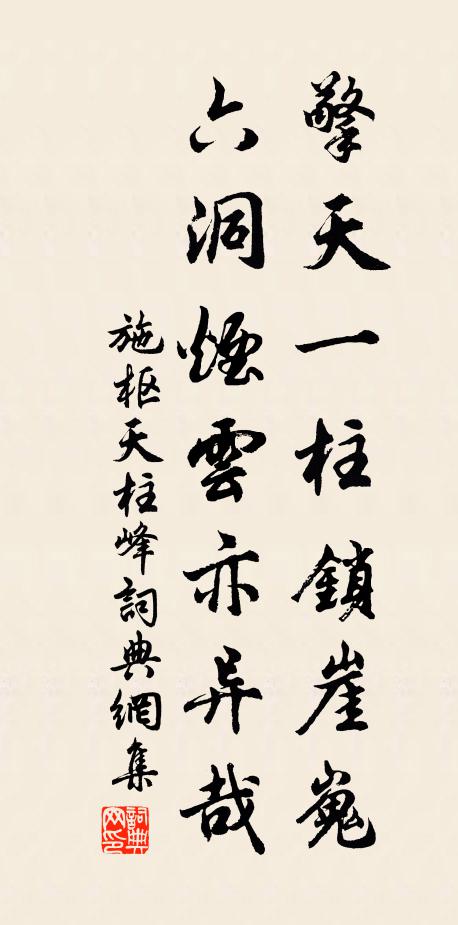 擎天一柱鎖崖嵬
六洞煙雲亦异哉
施枢天柱峰詞典網集
詞典网印